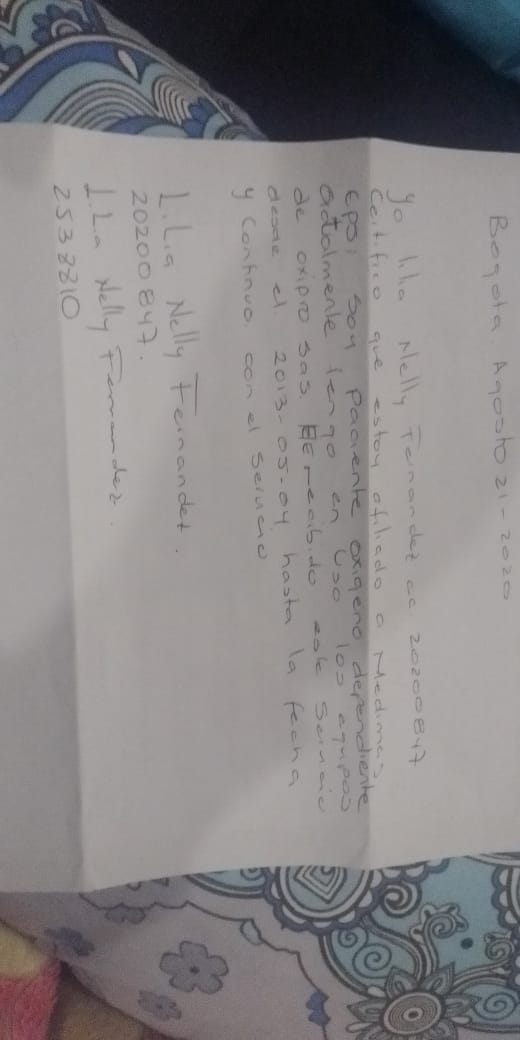 Bogota. Agosto 21-2020
Yo lilia Nelly Fernandez cc 20200847
Certifico que estoy afiliado a Medimas
EPS, soy Paciente oxigeno dependiente
actalmente tengo en uso los equipos
de oxipro sas, HE recibido este Servicio
desde el 2013-05-04 hasta la fecha
y Continuo con el Servicio
Lilia Nelly Fernandez.
20200847.
Lilia Nelly Fernandez.
2538810